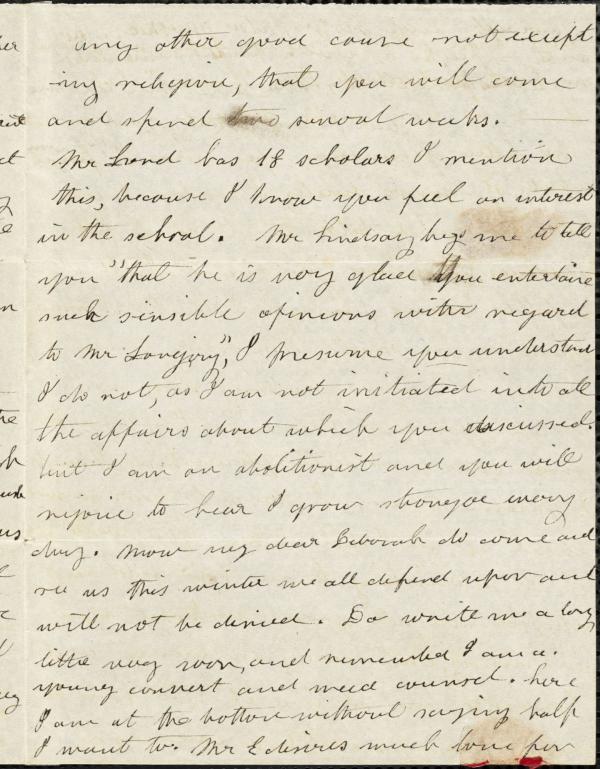 any other good cause not except
ing religion, that you will come
and spend two several weeks.
Mr Lord has 18 scholars I mention
this, because I know you feel an interest
in the school. Mr Lindsay begs me to tell
you "that he is very glad you entertain
such sensible opinions with regard
to Mr Lovejoy", I presume you understand
I do not, as I am not initiated into all
the affairs about which you discussed.
but I am an abolitionist and you will
rejoice to hear I grow stronger every
day. Now my dear Deborah do come and
see us this winter we all depend upon and
will not be denied. Do write me a long
letter very soon, and remember I am a
young convert and need counsel. here
I am at the bottom without saying half
I want to. Mr E desires much love for